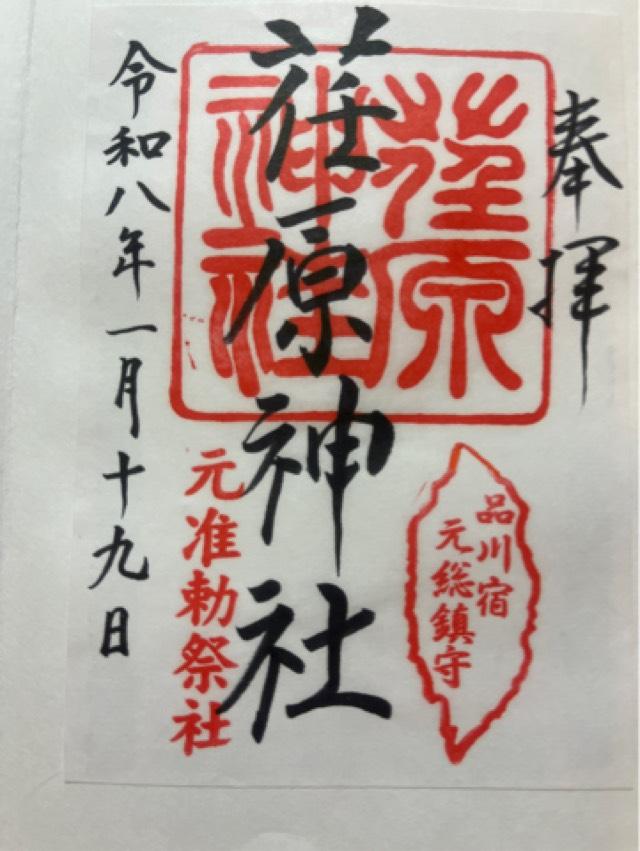 奉拝
荏原神社
荏原
神社
品川宿
元総鎮守
元准勅祭社
令和八年一月十九日